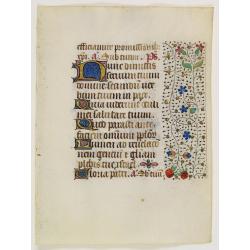 efficiamur promissionib
xpi. a. Sub tuum. Ps.
Nunc dimittis
servum tuum
domine secundum ver
bum tuum in pace
Quia viderunt oculi
mei salutare tuum
Quod parasti ante
faciem omnium pplor
Lumen ad revelacio
nem gencium et gliam
plebis tue israel
Gloria patri. a. Sub tuum